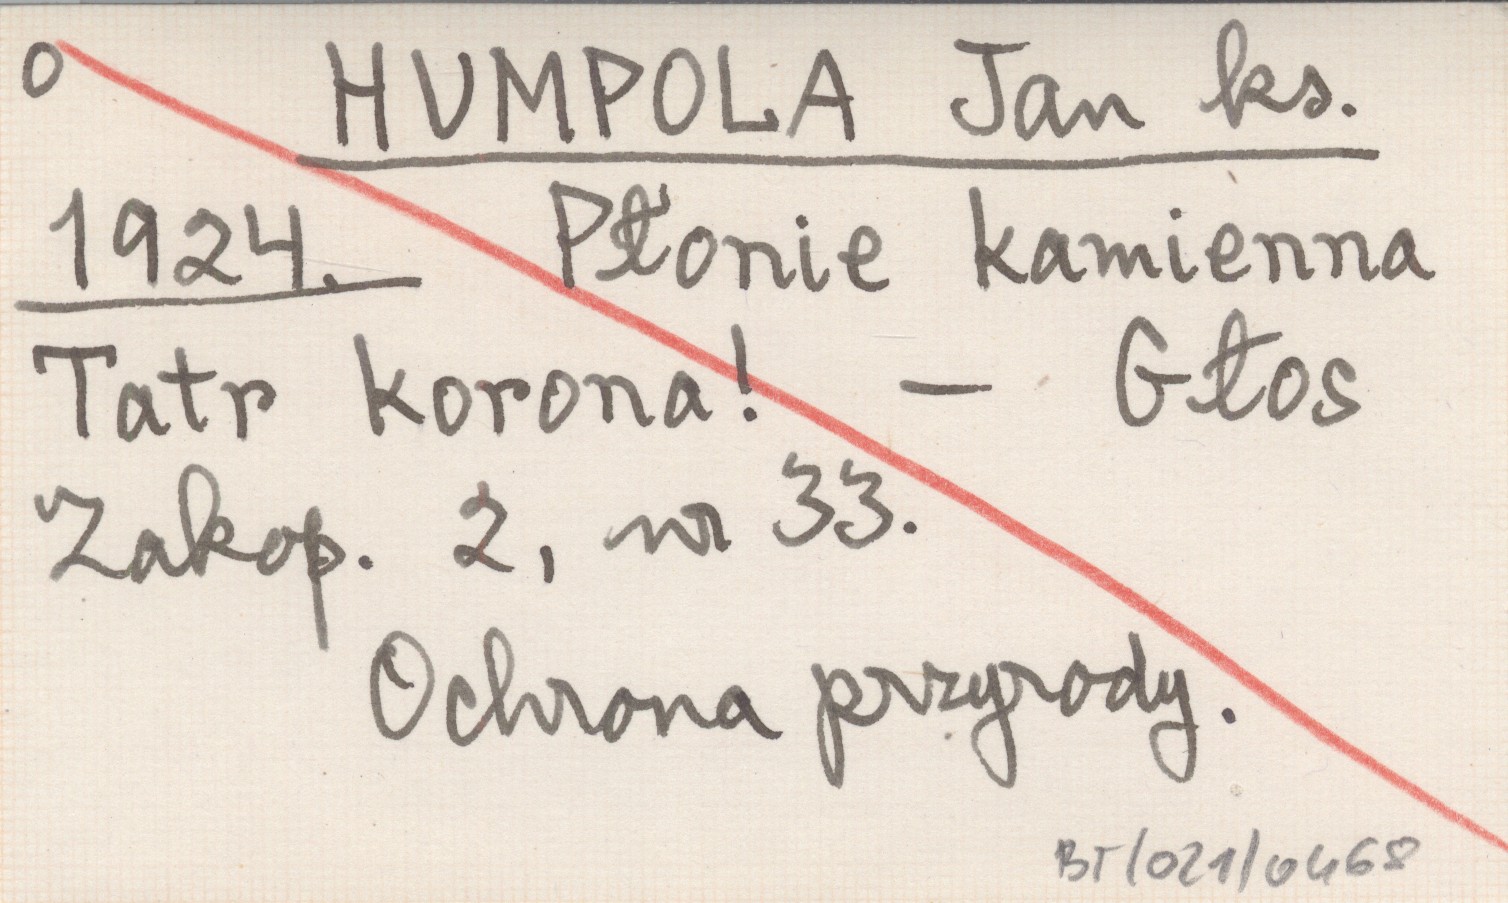 O HUMPOLA Jan ks.
1924. Płonie kamienna
Tatr korona! — Głos
Zakop. 2, nr 33.
Ochrona przyrody.
BT/021/0468